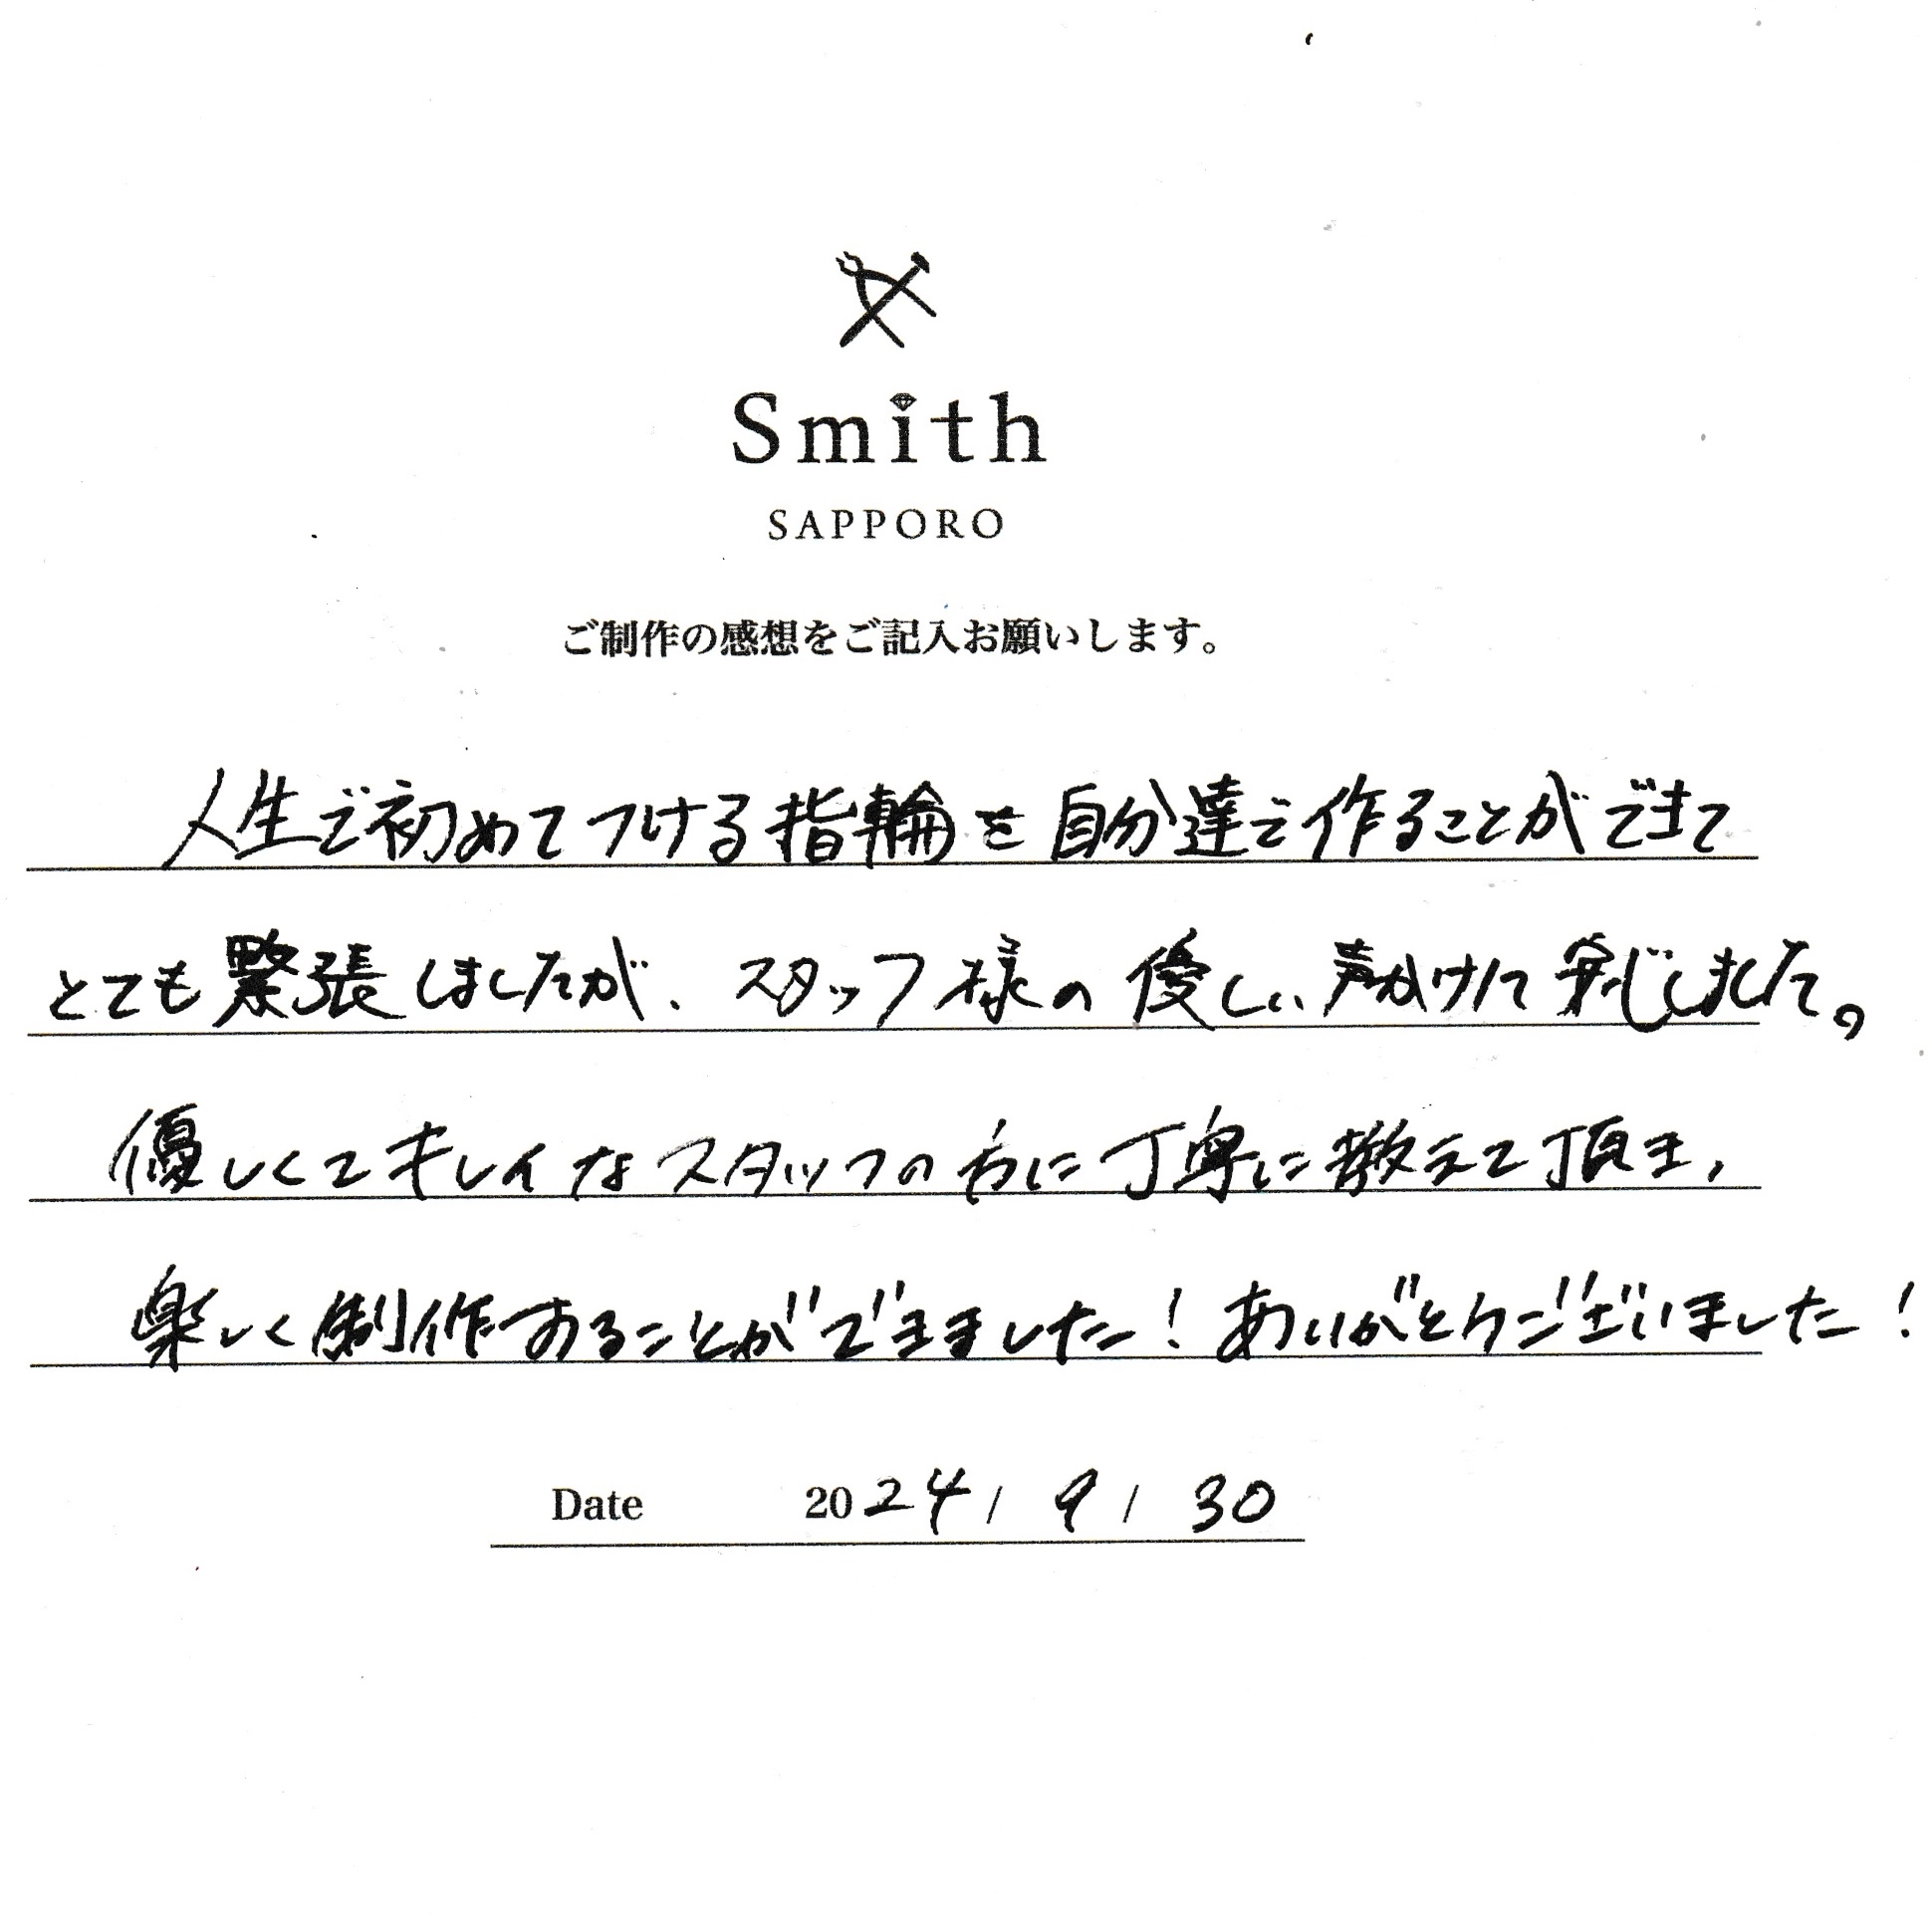 Smith
SAPPORO
ご制作の感想をご記入お願いします。
人生で初めてつける指輪を自分達で作ることができて
とても緊張しましたが、スタッフ様の優しい声かけに安じました。
優しくてキレイなスタッフの方に丁寧に教えて頂き、
楽しく制作することができました!ありがとうございました!
Date 2024/9/30